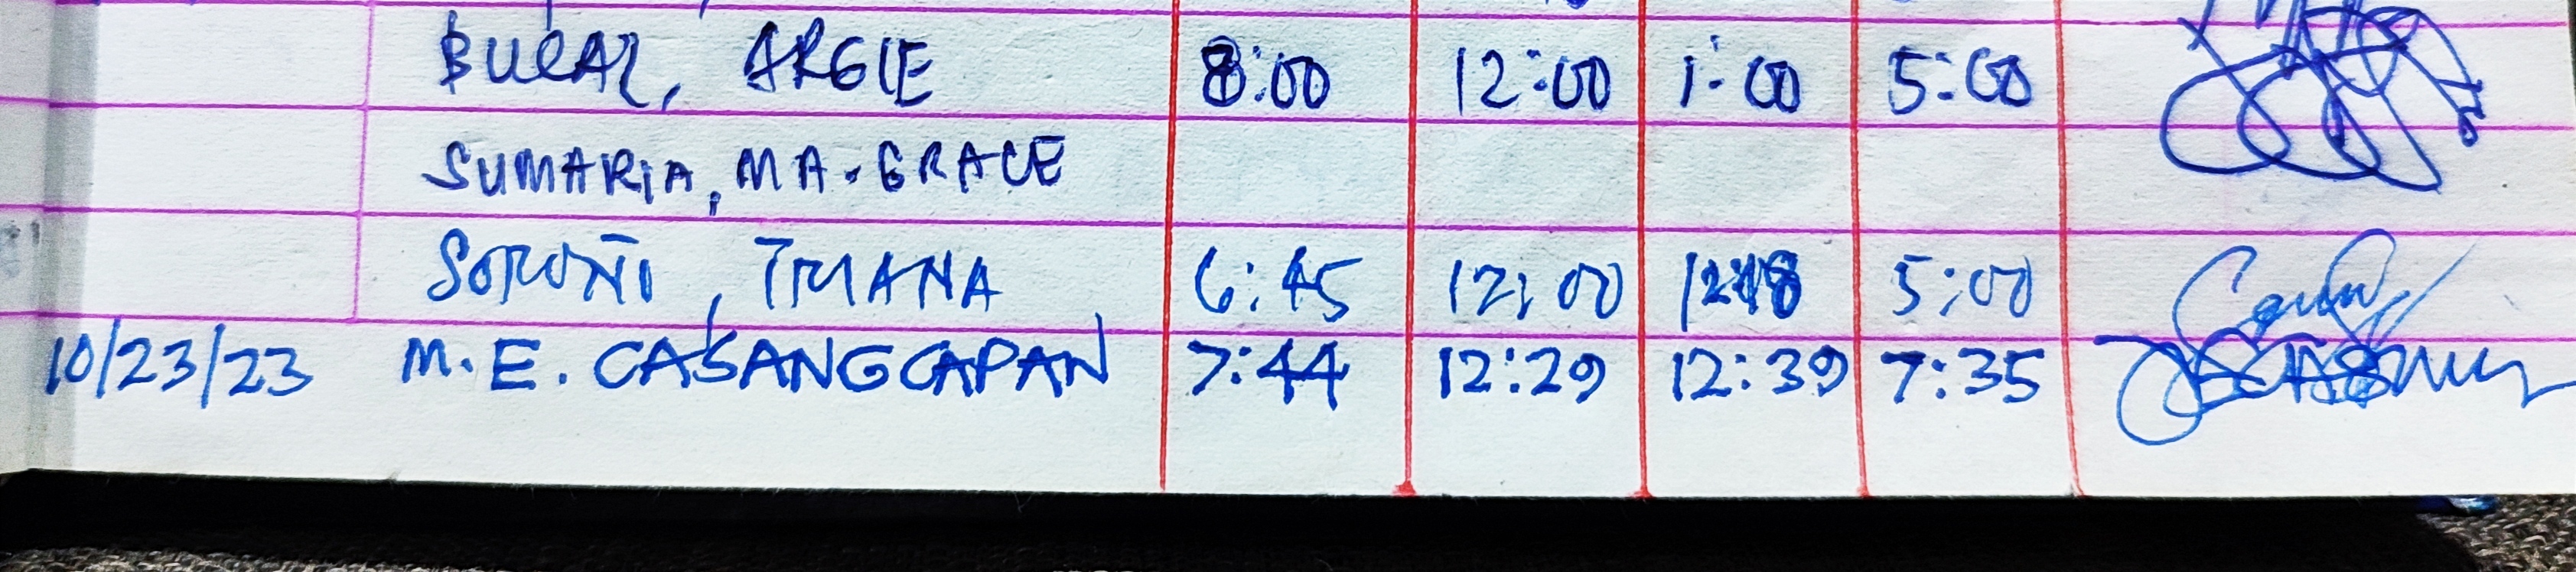 BUCAL, ARGIE 8:00 12:00 1:00 5:00
SUMARIA, MA. GRACE
SOROÑI, TRIANA 6:45 12:00 12:18 5:00
10/23/23 M.E. CASANGCAPAN 7:44 12:29 12:39 7:35